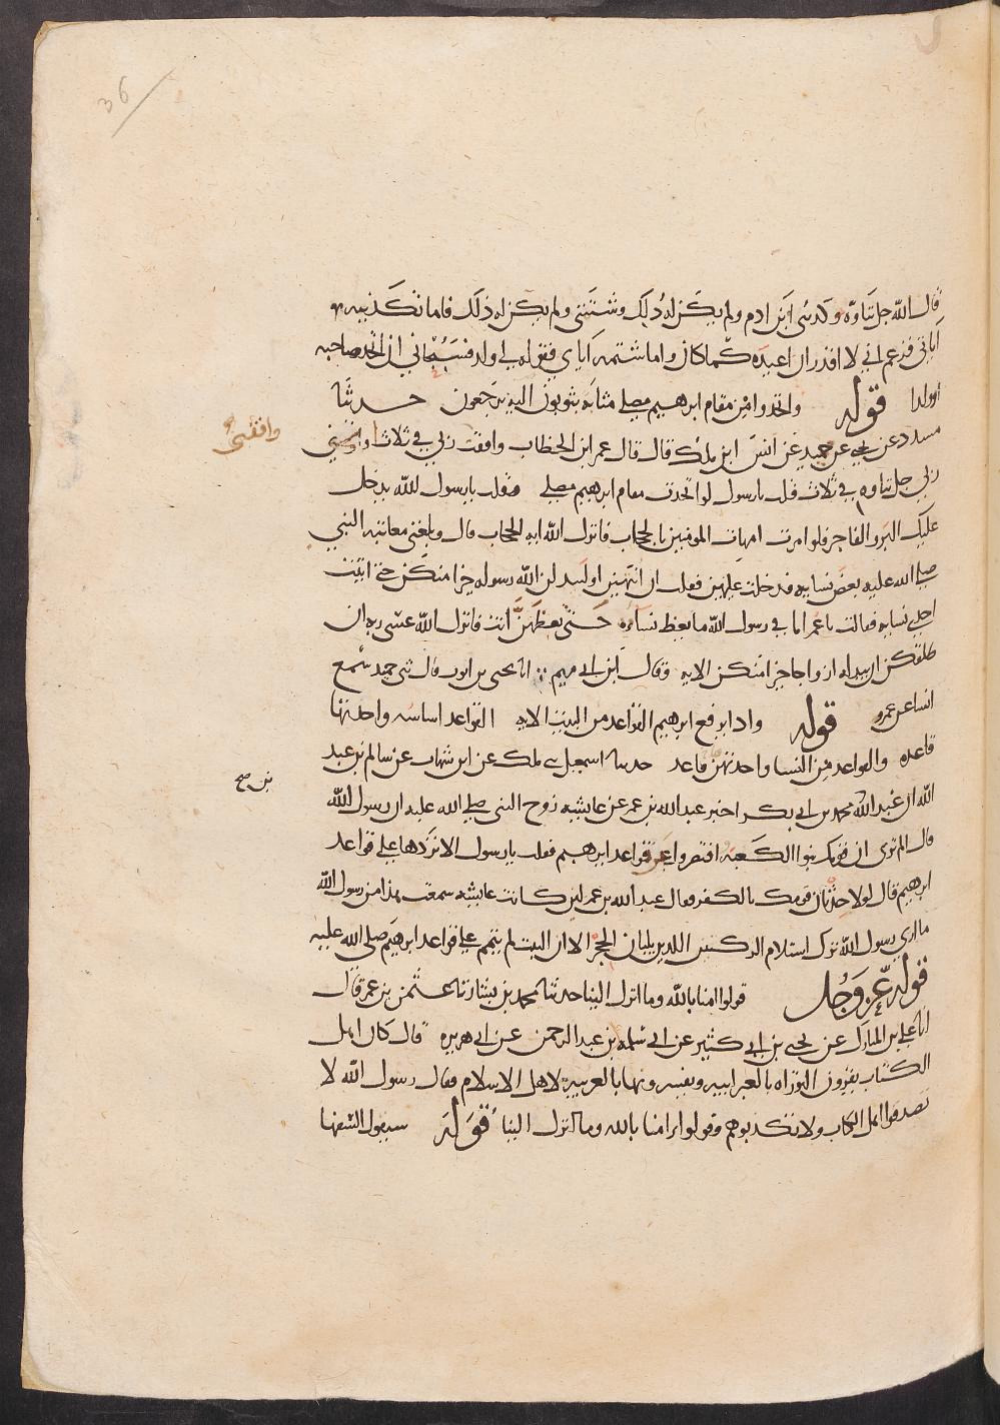 36
قال الله جل ثناوه وكذبني ابن ادم ولم يكن له ذلك وشتمني ولم يكن له ذلك فاما تكذيبه
اياي فزعم اني لا اقدر ان اعيده كما كان واما شتمه اياي فقوله لي ولد فسبحاني ان اتخذ صاحبه
او ولدا قوله واتخذوا من مقام ابرهيم مصلى مثابه يثوبون اليه يرجعون حدثنا
مسدد عن يحيى عن حميد عن انس ابن ملك قال قال عمر ابن الخطاب وافقت ربي في ثلاث او وافقني
وافقني
ربي جل ثناوه في ثلاث قلت يا رسول لو اتخذت مقام ابرهيم مصلى وقلت يا رسول الله يدخل
عليك البر والفاجر فلو امرت امهات المومنين بالحجاب فانزل الله ايه الحجاب قال وبلغني معاتبه النبي
صلى الله عليه بعض نسايه فدخلت عليهن فقلت ان انتهيتن او ليبدلن الله رسوله خيرا منكن حتى اتيت
احدى نسايه فقالت يا عمر اما في رسول الله ما يعظ نساه حتى تعظهن انت فانزل الله عسى ربه ان
طلقكن ان يبدله ازواجا خيرا منكن الايه وقال ابن ابي مريم انا يحيى بن ايوب قال ثني حميد سمع
انسا عن عمر قوله واذ يرفع ابرهيم القواعد من البيت الايه القواعد اساسه واحدتها
قاعده والقواعد من النسا واحدتهن قاعد حدثنا اسمعيل ملك عن ابن شهاب عن سالم بن عبد
الله ان عبد الله محمد بن ابي بكر اخبر عبد الله بن عمر عن عايشه زوج النبي صلى الله عليه ان رسول الله
بن صح
قال الم تري ان قومك بنوا الكعبه اقتصروا عن قواعد ابرهيم فقلت يا رسول الا تردها على قواعد
ابرهيم قال لولا حدثان قومك بالكفر فقال عبد الله بن عمر لين كانت عايشه سمعت هذا من رسول الله
ما اري رسول الله ترك استلام الركنين اللذين يليان الحجر الا ان البيت لم يتمم على قواعد ابرهيم صلى الله عليه
قوله عز وجل قولوا امنا بالله وما انزل الينا حدثنا محمد بن بشار نا عثمن بن عمر قال
انا علي ابن المبارك عن يحيى بن ابي كثير عن ابي سلمه بن عبد الرحمن عن ابي هريره قال كان اهل
الكتاب يقرون التوراه بالعبرانيه ويفسرونها بالعربيه لاهل الاسلام فقال رسول الله لا
تصدقوا اهل الكتاب ولا تكذبوهم وقولوا امنا بالله وما انزل الينا قوله سيقول السفها